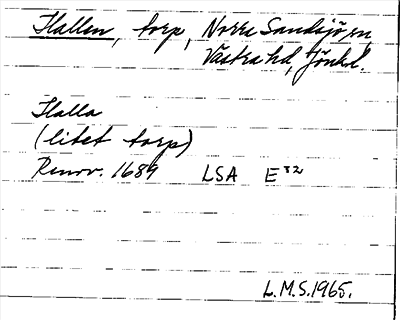 Hallen, torp, Norra Sandsjö sn,
Västra hd, Jönkl.
Halla
(litet torp)
Renov. 1689 LSA E³²
L.M.S. 1965.